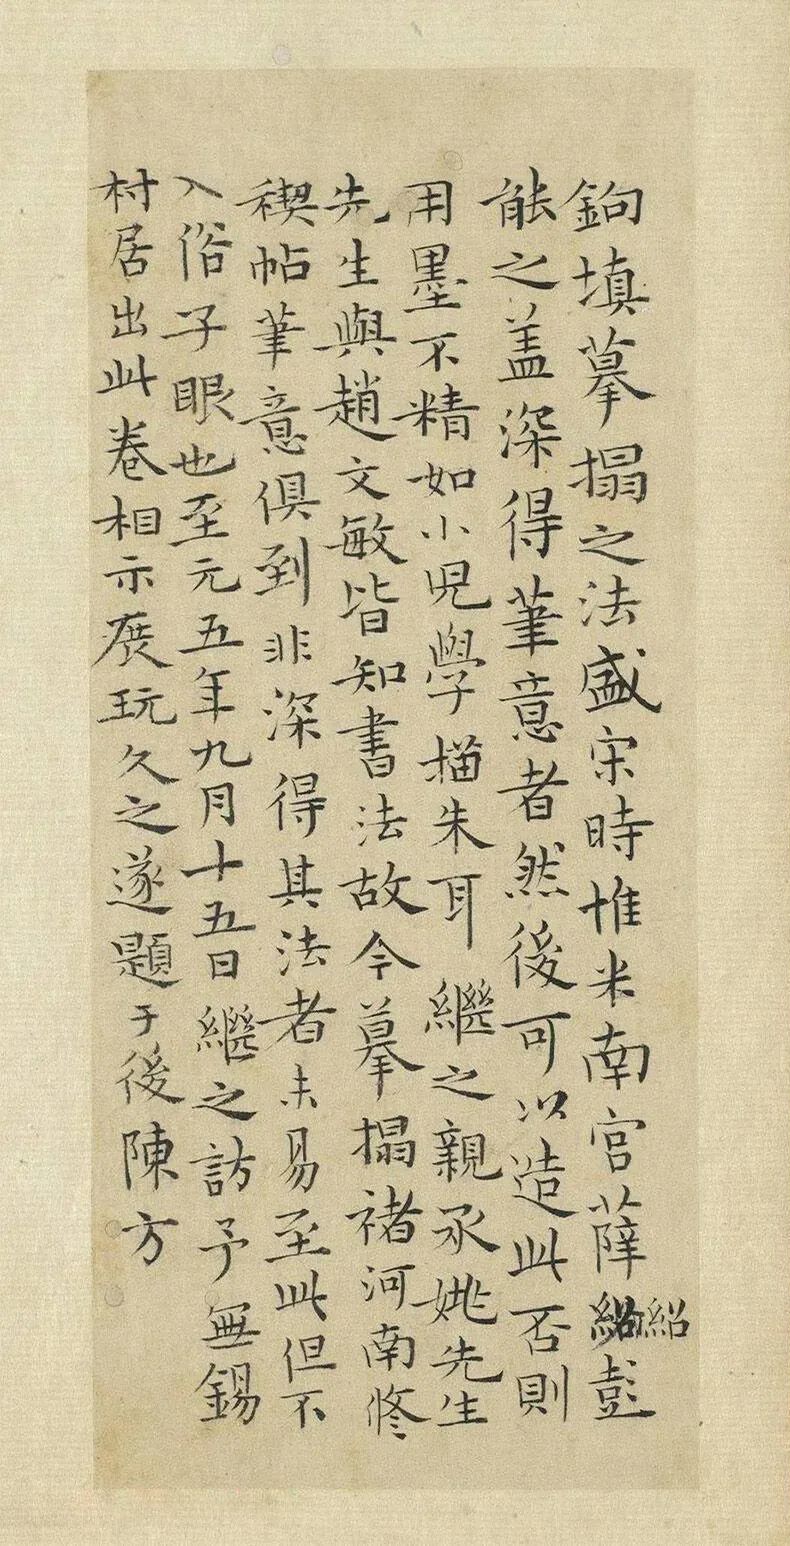 鉤填摹搨之法盛宋時惟米南宮薛紹彭
紹
能之蓋深得筆意者然後可以造此否則
用墨不精如小児學描朱耳 繼之親承姚先生
先生與趙文敏皆知書法故今摹搨禇河南修
禊帖筆意俱到非深得其法者未易至此但不
入俗子眼也至元五年九月十五日繼之訪予無錫
村居出此卷相示展玩久之遂題于後陳方